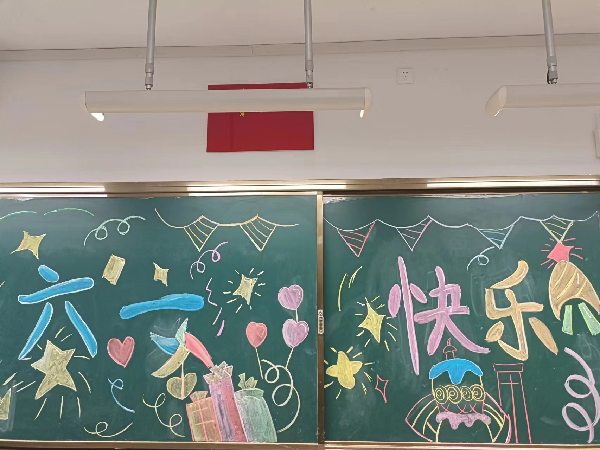 六一快乐